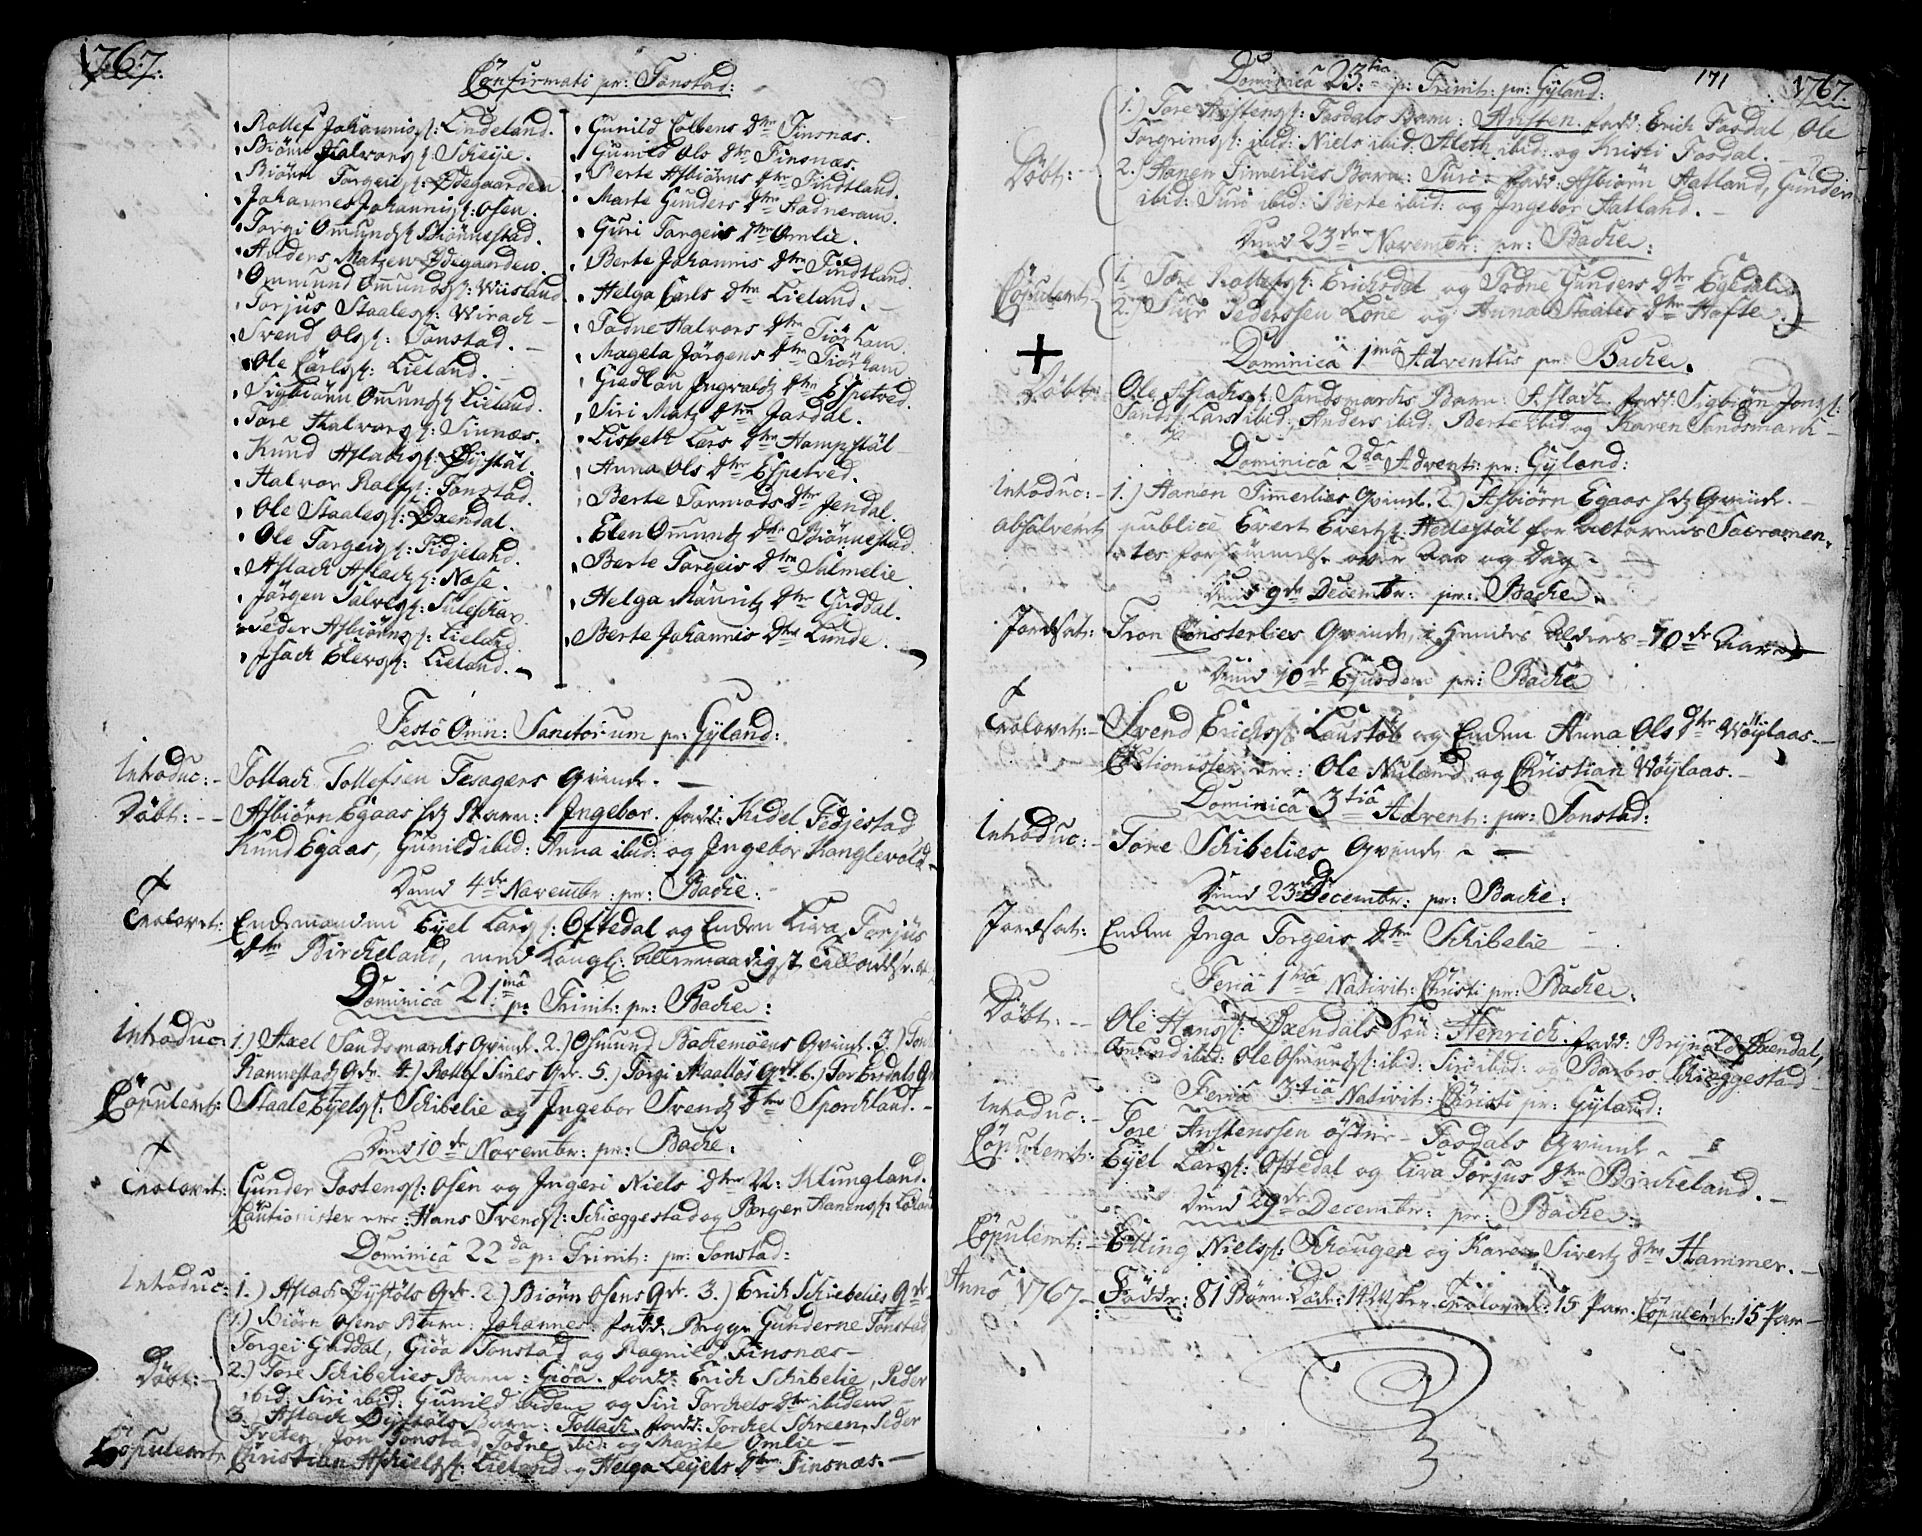 1767.
Confirmati pr: Tonstad:
Rollef Johannis: Lindeland.
Biörn Halvors: Scheije.
Biörn Torgeis: Ødegaarden
Johannes Johannis: Osen.
Torgi Omunds: Biönnestad.
Anders Matzen Ødegaarden.
Ommund Omunds: Wiisland
Torjus Staales: Wirach
Svend Ols: Tonstad.
Ole Carls: Lieland.
Sigbiörn Omunds: Lieland.
Tore Halvors: Sinnæs.
Knud Aslachs: Øystöl.
Halvor Rolfs: Tonstad.
Ole Staales: Øxendal.
Ole Torgeis: Fidjeland.
Aslach Aslachs: Næse.
Jörgen Salves: Suleschar
Peder Asbiörns: Lieland
Isach Elevs: Lieland.
Gunild Colbens Dtr Finsnæs.
Gunild Ols Dtr Finsnæs.
Berte Asbiörns Dtr Findtland.
Marte Gunders Dtr Hadneram.
Guri Torgeis Dtr Omlie.
Berte Johannis Dtr Findtland.
Helga Carls Dtr Lieland.
Todne Halvors Dtr Tiörham.
Magela Jörgens Dtr Tiörham
Giedlou Ingvalds Dtr Espetved.
Siri Matz Dtr Josdal.
Lisbeth Lars Dtr Hompstöl
Anna Ols Dtr Espetved.
Berte Tormods Dtr Jendal.
Elen Omunds Dtr Biönnestad
Berte Torgeis Dtr Salmelie
Helga Mauritz Dtr Guddal.
Berte Johannis Dtr Lunde.
Festo Omn: Sanctorum pr: Gyland:
Introduc: Tollach Tollefsen Tesagers Qvinde.
Döbt: Asbiörn Egaas Barn: Ingebor. fadd: Kidel Fedjestad
Knud Egaas, Gunild ibid: Anna ibid: og Ingebor Hanglevold
Dnd 4de Novembr: pr: Bache.
Trolovet: Endemanden Eyel Lars: Oftedal og Enden Lira Torjus
Dtr Birckeland, med Kongl: allernaadigst Tilladelse.
Dominica 21ma p: Trinit: pr: Bache:
Introduc: 1.) Axel Sandsmarchs Qvinde. 2.) Osmund Bachemoens Qvinde. 3.)
4.) Rollef Sines Qde. 5.) Torgi Maalløs Qde. 6.)
Copuleret: Staale Eyels: Schibelie og Ingebor Svends Dtr Sporchland.
Dnd 10de Novembr: pr: Bache.
Trolovet: Gunder Tostens: Osen og Ingeri Niels Dtr N: Klungland.
Cautionister ere: Hans Svends: Schieggestad og Börger Hanens:
Dominica 22da p: Trinit: pr: Tonstad:
Introduc: 1.) Aslach Öystöls Qde. 2.) Biörn Osens Qde. 3.) Erich Schibelies Qde
Döbt: 1.) Biörn Osens Barn: Johannes. fadd: Begge Gunderne Tonstad
Torgei Guddal, Giöa Tonstad og Ragnild Finsnæs
2.) Tore Schibelies Barn: Giöa. fadd: Erich Schibelie, Peder
ibid: Siri ibid: Gunild ibidem og Siri Torchels Dtr ibidem
3. Aslach Öystöls Barn: Tollach. fadd: Torchel Schreen, Peder
Treten, Jon Tonstad, Todne ibid: og Marite Omlie
Copuleret Christian Aschiels: Lieland og Helga Leijels Dtr Finsnæs.
171
1767.
Dominica 23tia p: Trinit: pr: Gyland:
Döbt: 1.) Tore Anstens: Tosdals Barn: Ansten. fadd: Erich Tosdal, Ole
Torgrims: ibid: Niels ibid: Aleth ibid: og Kristi Tosdal.
2.) Hanen Timerlies Barn: Turi. fadd: Asbiörn Hatland, Gunder
ibid: Turi ibid: Berte ibid: og Ingebor Hatland.
Dnd 23de Novembr: pr: Bache:
Copuleret 1. Tore Rollefs: Erichsdal og Todne Gunders Dtr Egedal
2. Siur Pederssen Lone og Anna Staales Dtr Hafte.
Dominica 1ma Adventus pr: Bache.
Döbt: Ole Aslachs: Sandsmarchs Barn: Aslach. fadd: Sigbiörn Jons:
Sands: Lars ibid: Anders ibid: Berte ibid: og Karen Sandsmarch
Dominica 2da Advent: pr: Gyland:
Introduc: 1.) Hanen Timerlies Qvinde. 2.) Asbiörn Egaas Qvinde.
absolveret publicè Evert Everts: Hedlestöl for Sacramen-
tes forsömmelse over Aar og Dag
Dnd 9de Decembr: pr: Bache.
Jordfæt: Tron Consterlies Qvinde, i hendes alders 70de Aar
Dnd 10de Ejusdem pr: Bache
Trolovet: Svend Erichs: Laustöl og Enden Anna Ols Dtr Wöylaas
Cautionister ere: Ole Nuland og Christian Wöylaas.
Dominica 3tia Advent: pr: Tonstad:
Introduc: Tore Schibelies Qvinde
Dnd 23de Decembr: pr: Bache:
Jordfæt: Enden Inga Torgeis Dtr Schibelie
Feria 1ma Nativit: Christi pr: Bache.
Döbt: Ole Hans: Øxendals Sön: Henrich. fadd: Brynild Øxendal,
Omund ibid: Ole Osmunds: ibid: Siri ibid: og Barbro Schieggestad
Feria 3tia Nativit: Christi pr: Gyland:
Introduc: Tore Anstenssen östre Tosdals Qvinde
Copuleret: Eyel Lars: Oftedal og Lira Torjus Dtr Birckeland.
Dnd 29de Decembr: pr: Bache.
Copuleret: Elling Niels: Schougen og Karen Siverts Dtr Hammer.
Anno 1767 Födde: 81 Börn. Döde: 14 trolovede: 15 Par. Copulerede: 15 Par